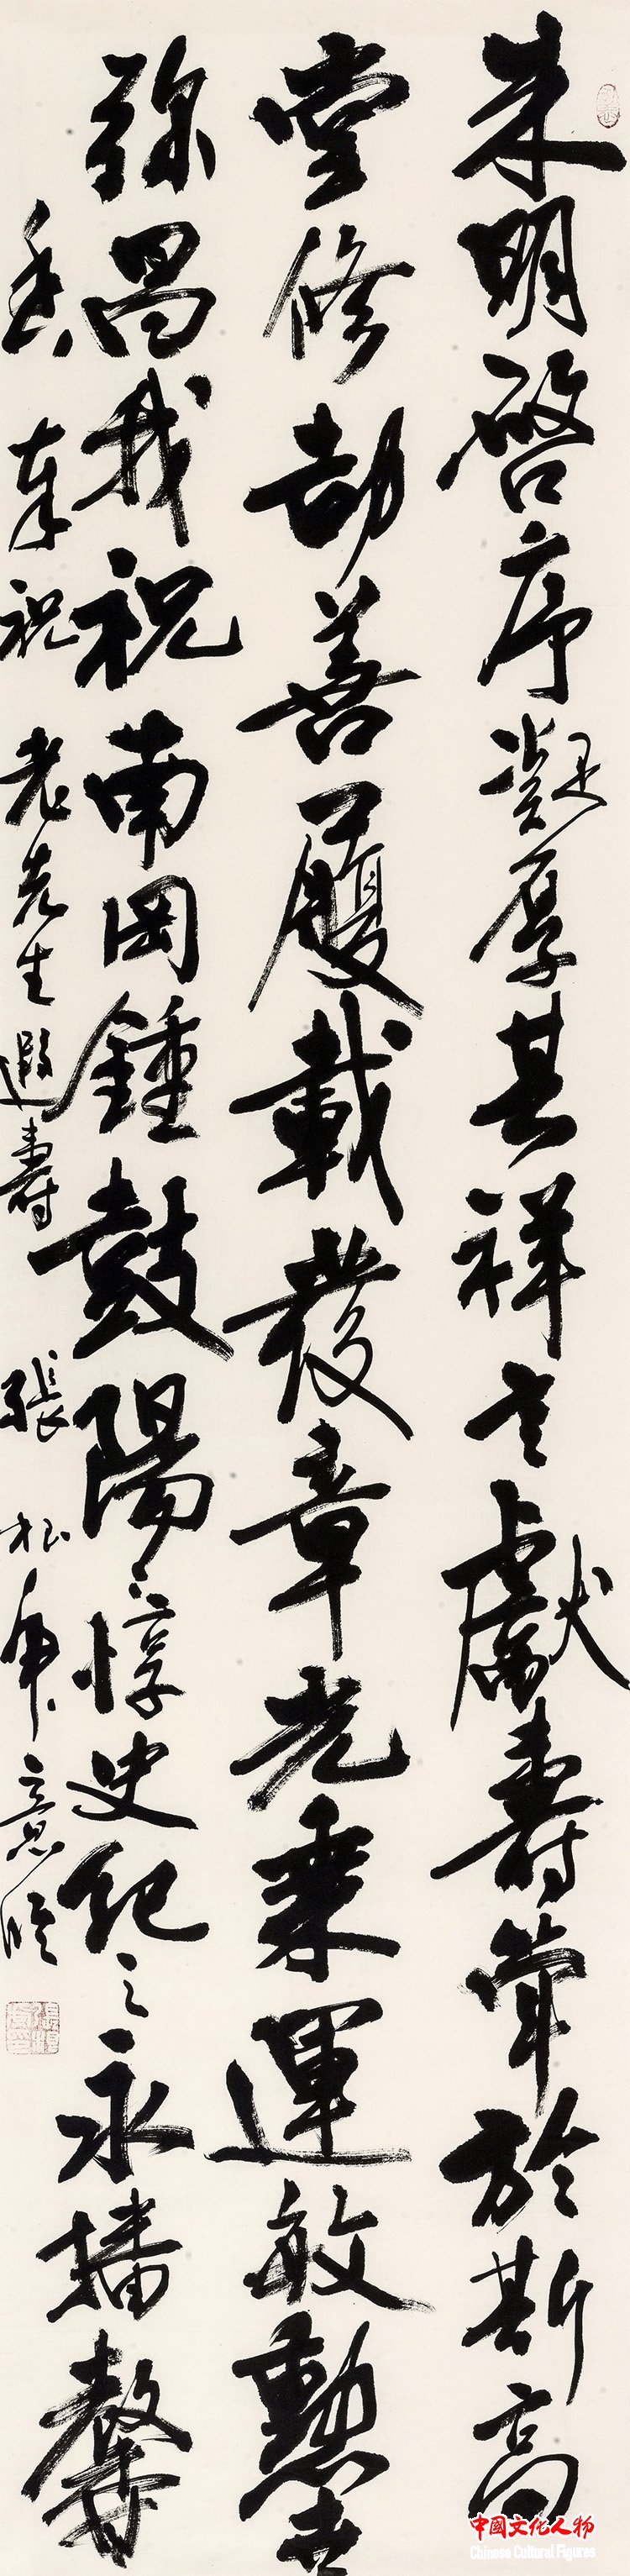 朱明啓序凝厚其祥言獻壽於斯高
堂修劼善履載發章光乘運敏懃
弥昌我祝南岡鍾鼓陽々惇史紀之永播馨
香 奉祝 老先生遐壽 張年意臨
中国文化人物
Chinese Cultural Figures